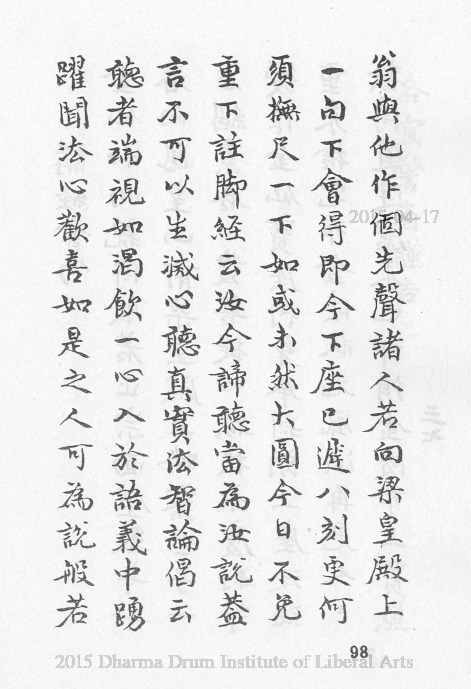 翁與他作個先聲諸人若向梁皇殿上
一句下會得即今下座已遲八刻更何
須撫尺一下如或未然大圓今日不免
重下註脚経云汝今諦聽當為汝說蓋
言不可以生滅心聽真實法智論偈云
聽者端視如渴飲一心入於語義中踴
躍聞法心歡喜如是之人可為說般若
98
2015 Dharma Drum Institute of Liberal Arts